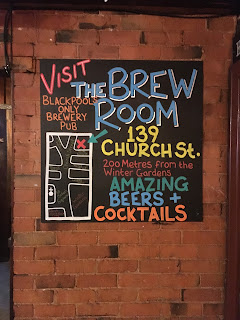 VISIT
THE BREW
ROOM
BLACKPOOLS
ONLY
BREWERY
PUB
139
CHURCH St.
200 Metres from the
Winter Gardens
AMAZING
BEERS +
COCKTAILS